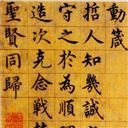 動箴
哲人知幾誠
守之於為順
造次克念戰
聖賢同歸